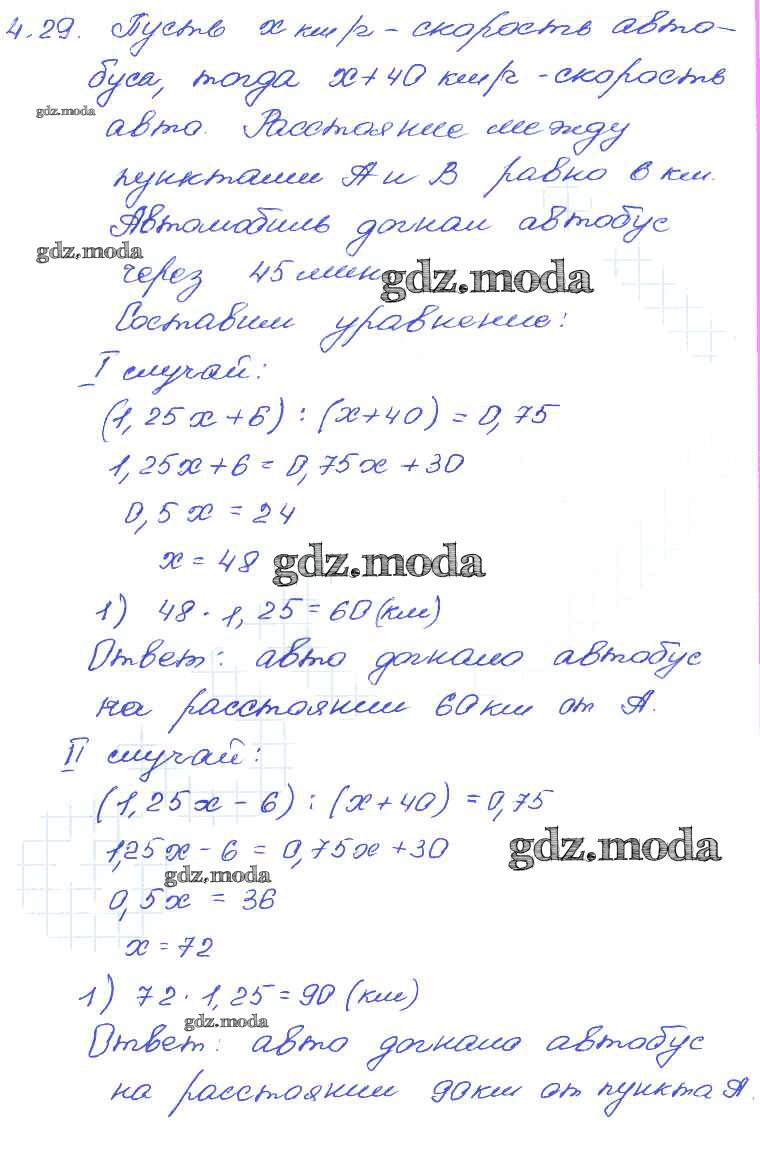 4.29. Пусть x км/ч - скорость авто-
буса, тогда x+40 км/ч - скорость
gdz.moda
авто. Расстояние между
пунктами А и В равно 6 км.
Автомобиль догнал автобус
gdz.moda
через 45 мин
gdz.moda
Составим уравнение:
I случай:
(1,25x+6) : (x+40) = 0,75
1,25x+6 = 0,75x+30
0,5x = 24
x = 48 gdz.moda
1) 48 · 1,25 = 60 (км)
Ответ: авто догнало автобус
на расстоянии 60 км от А.
II случай:
(1,25x - 6) : (x+40) = 0,75
1,25x - 6 = 0,75x+30
gdz.moda
gdz.moda
0,5x = 36
x = 72
1) 72 · 1,25 = 90 (км)
gdz.moda
Ответ: авто догнало автобус
на расстоянии 90км от пункта А.